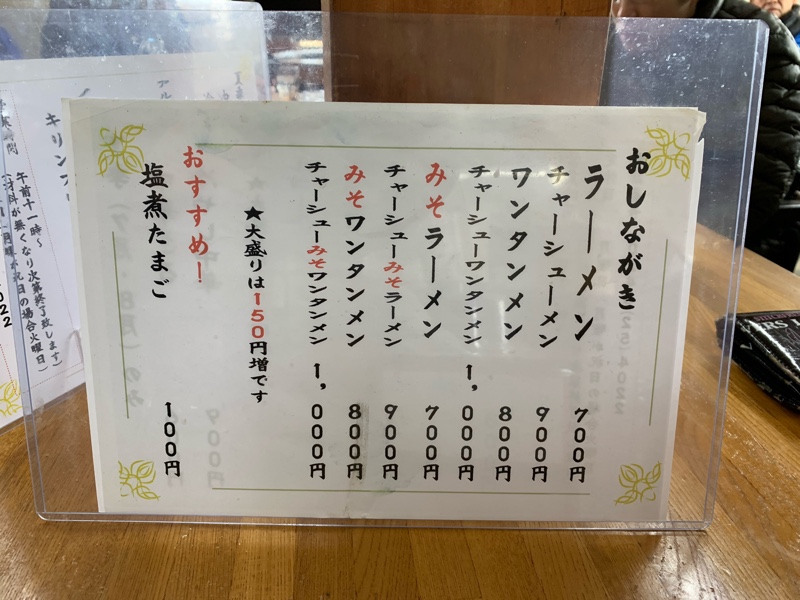 おしながき
ラーメン 700円
チャーシューメン 900円
ワンタンメン 800円
チャーシューワンタンメン 1,000円
みそラーメン 700円
チャーシューみそラーメン 900円
みそワンタンメン 800円
チャーシューみそワンタンメン 1,000円
★大盛りは150円増です
おすすめ！
塩煮たまご 100円
キリン
午前十一時～
(材料が無くなり次第終了致します)